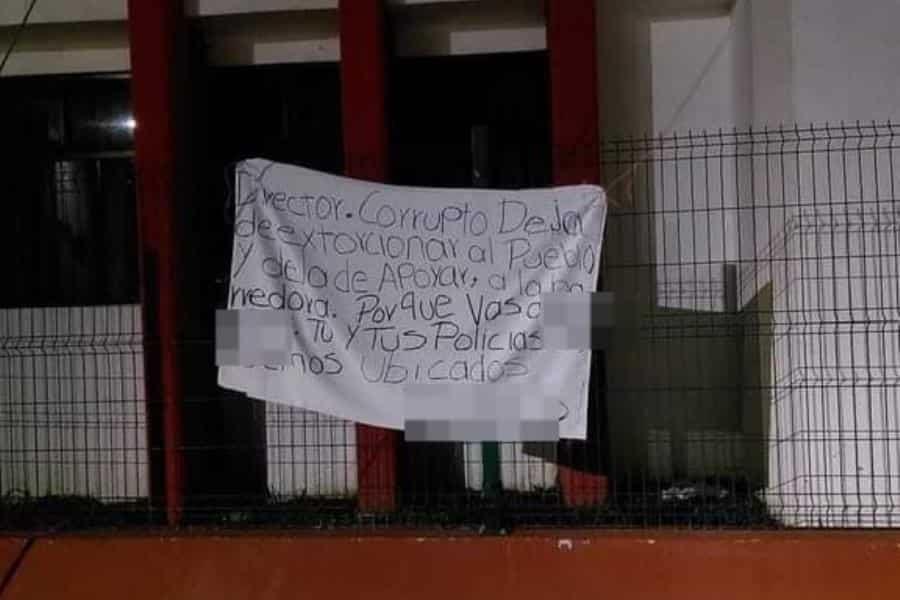 Director. Corrupto Deja
de extorcionar al Pueblo
y dela de APoyar, a la Ba
rredora. Porque Vas a
Tu y Tus Policias
Ubicados